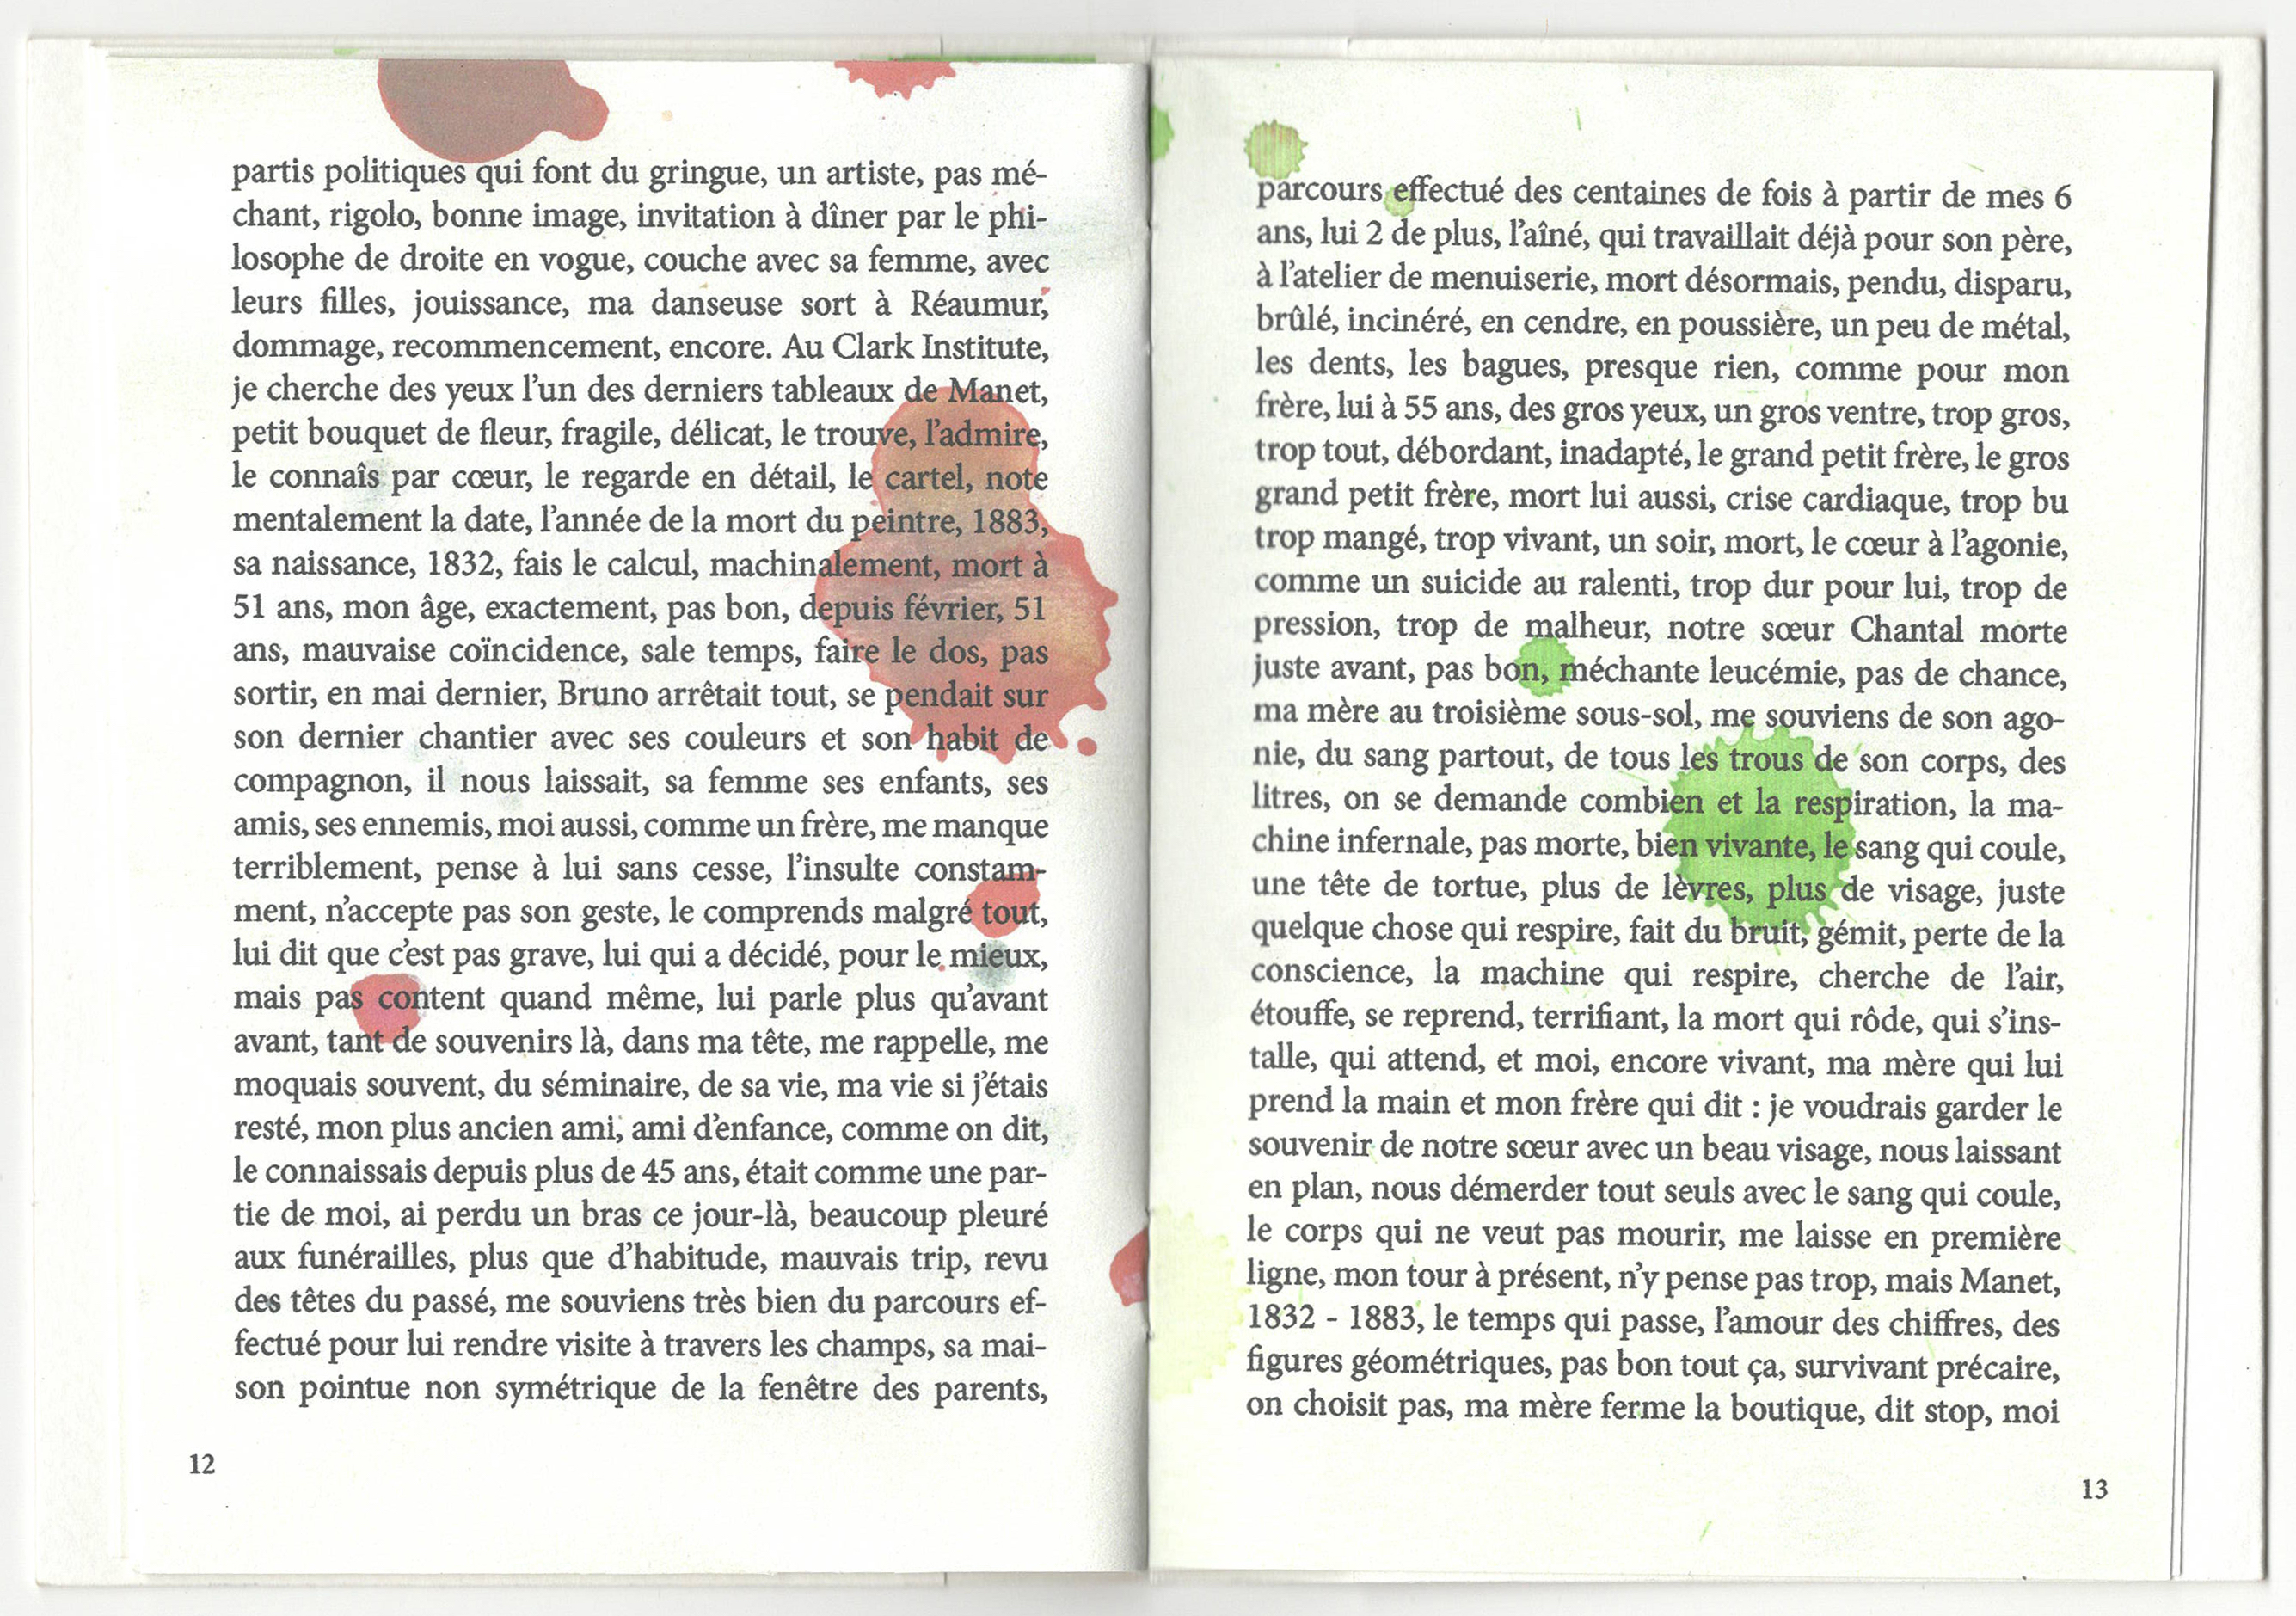 partis politiques qui font du gringue, un artiste, pas mé-
chant, rigolo, bonne image, invitation à dîner par le phi-
losophe de droite en vogue, couche avec sa femme, avec
leurs filles, jouissance, ma danseuse sort à Réaumur,
dommage, recommencement, encore. Au Clark Institute,
je cherche des yeux l'un des derniers tableaux de Manet,
petit bouquet de fleur, fragile, délicat, le trouve, l'admire,
le connaîs par cœur, le regarde en détail, le cartel, note
mentalement la date, l'année de la mort du peintre, 1883,
sa naissance, 1832, fais le calcul, machinalement, mort à
51 ans, mon âge, exactement, pas bon, depuis février, 51
ans, mauvaise coïncidence, sale temps, faire le dos, pas
sortir, en mai dernier, Bruno arrêtait tout, se pendait sur
son dernier chantier avec ses couleurs et son habit de
compagnon, il nous laissait, sa femme ses enfants, ses
amis, ses ennemis, moi aussi, comme un frère, me manque
terriblement, pense à lui sans cesse, l'insulte constam-
ment, n'accepte pas son geste, le comprends malgré tout,
lui dit que c'est pas grave, lui qui a décidé, pour le mieux,
mais pas content quand même, lui parle plus qu'avant
avant, tant de souvenirs là, dans ma tête, me rappelle, me
moquais souvent, du séminaire, de sa vie, ma vie si j'étais
resté, mon plus ancien ami, ami d'enfance, comme on dit,
le connaissais depuis plus de 45 ans, était comme une par-
tie de moi, ai perdu un bras ce jour-là, beaucoup pleuré
aux funérailles, plus que d'habitude, mauvais trip, revu
des têtes du passé, me souviens très bien du parcours ef-
fectué pour lui rendre visite à travers les champs, sa mai-
son pointue non symétrique de la fenêtre des parents,
12
parcours effectué des centaines de fois à partir de mes 6
ans, lui 2 de plus, l'aîné, qui travaillait déjà pour son père,
à l'atelier de menuiserie, mort désormais, pendu, disparu,
brûlé, incinéré, en cendre, en poussière, un peu de métal,
les dents, les bagues, presque rien, comme pour mon
frère, lui à 55 ans, des gros yeux, un gros ventre, trop gros,
trop tout, débordant, inadapté, le grand petit frère, le gros
grand petit frère, mort lui aussi, crise cardiaque, trop bu
trop mangé, trop vivant, un soir, mort, le cœur à l'agonie,
comme un suicide au ralenti, trop dur pour lui, trop de
pression, trop de malheur, notre sœur Chantal morte
juste avant, pas bon, méchante leucémie, pas de chance,
ma mère au troisième sous-sol, me souviens de son ago-
nie, du sang partout, de tous les trous de son corps, des
litres, on se demande combien et la respiration, la ma-
chine infernale, pas morte, bien vivante, le sang qui coule,
une tête de tortue, plus de lèvres, plus de visage, juste
quelque chose qui respire, fait du bruit, gémit, perte de la
conscience, la machine qui respire, cherche de l'air,
étouffe, se reprend, terrifiant, la mort qui rôde, qui s'ins-
talle, qui attend, et moi, encore vivant, ma mère qui lui
prend la main et mon frère qui dit : je voudrais garder le
souvenir de notre sœur avec un beau visage, nous laissant
en plan, nous démerder tout seuls avec le sang qui coule,
le corps qui ne veut pas mourir, me laisse en première
ligne, mon tour à présent, n'y pense pas trop, mais Manet,
1832 - 1883, le temps qui passe, l'amour des chiffres, des
figures géométriques, pas bon tout ça, survivant précaire,
on choisit pas, ma mère ferme la boutique, dit stop, moi
13